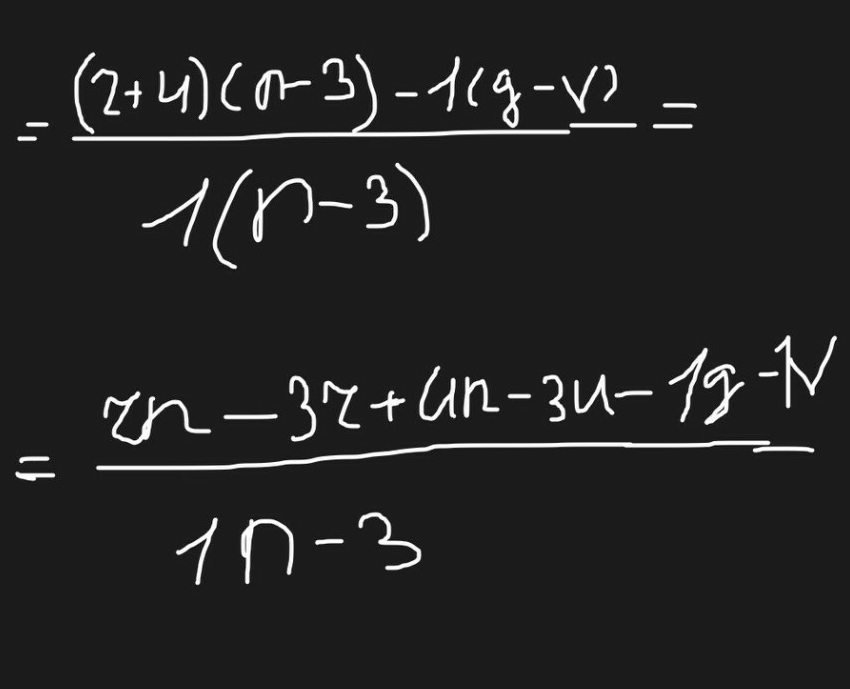 = (z+u)(n-3) - 1(g-v) =
1(n-3)
= zn - 3z + un - 3u - 1g - 1v
1n - 3